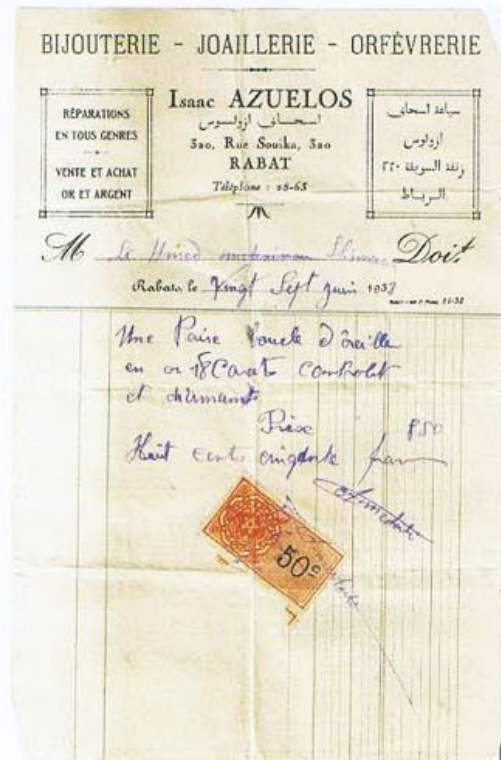 BIJOUTERIE - JOAILLERIE - ORFÈVRERIE
RÉPARATIONS
EN TOUS GENRES
VENTE ET ACHAT
OR ET ARGENT
Isaac AZUELOS
اسحاق ازولوس
320, Rue Souika, 320
RABAT
Téléphone : 28-65
صياغة اسحاق
ازولوس
زنقة السويقة ٣٢٠
الرباط
M Doit
Rabat, le Vingt Sept juin 1938
Une Paire boucle d'oreille
en or 18 Carats
et diamants
Prix 850
Huit cents cinqante
50c